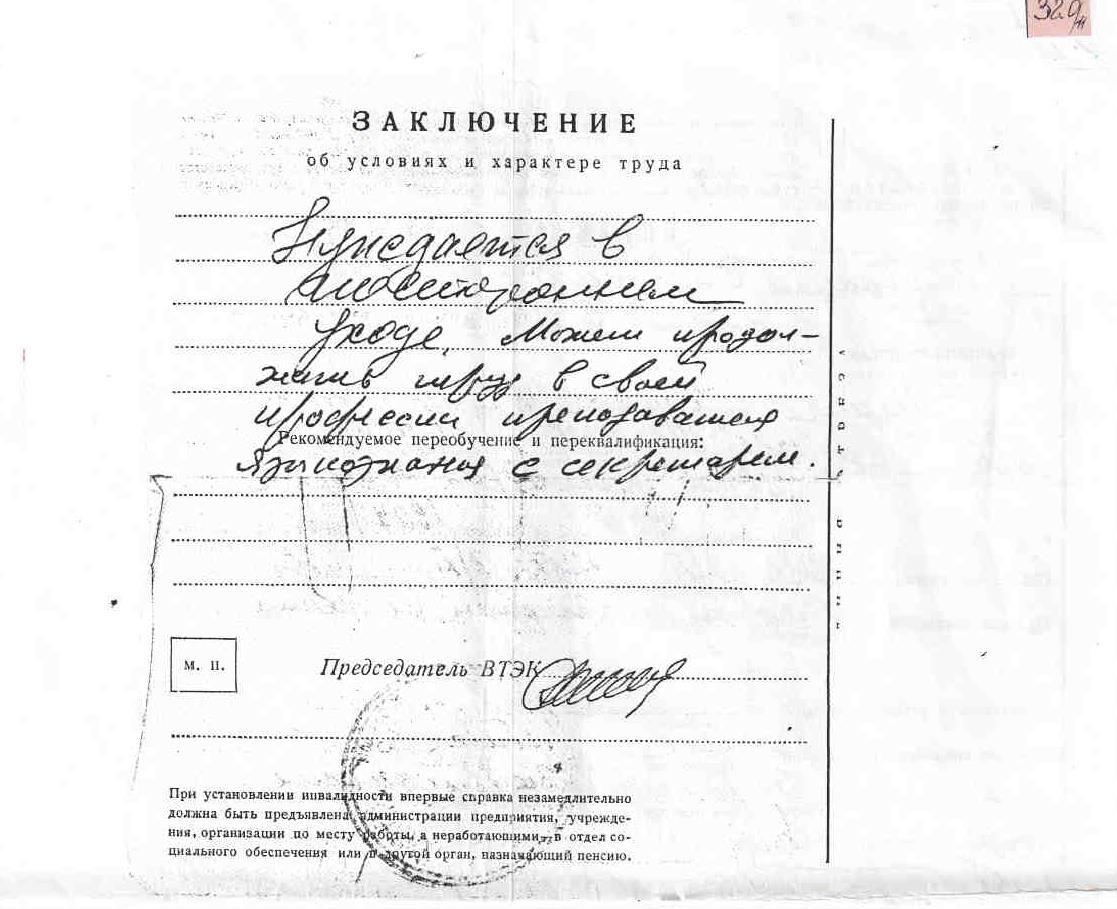 320/и
ЗАКЛЮЧЕНИЕ
об условиях и характере труда
Нуждается в
постороннем
уходе. Может продол-
жать труд в своей
профессии преподавателя
Рекомендуемое переобучение и переквалификация:
языкознания с секретарем.
М. П.
Председатель ВТЭК
При установлении инвалидности впервые справка незамедлительно
должна быть предъявлена администрации предприятия, учрежде-
ния, организации по месту работы, а неработающими — в отдел со-
циального обеспечения или в другой орган, назначающий пенсию.